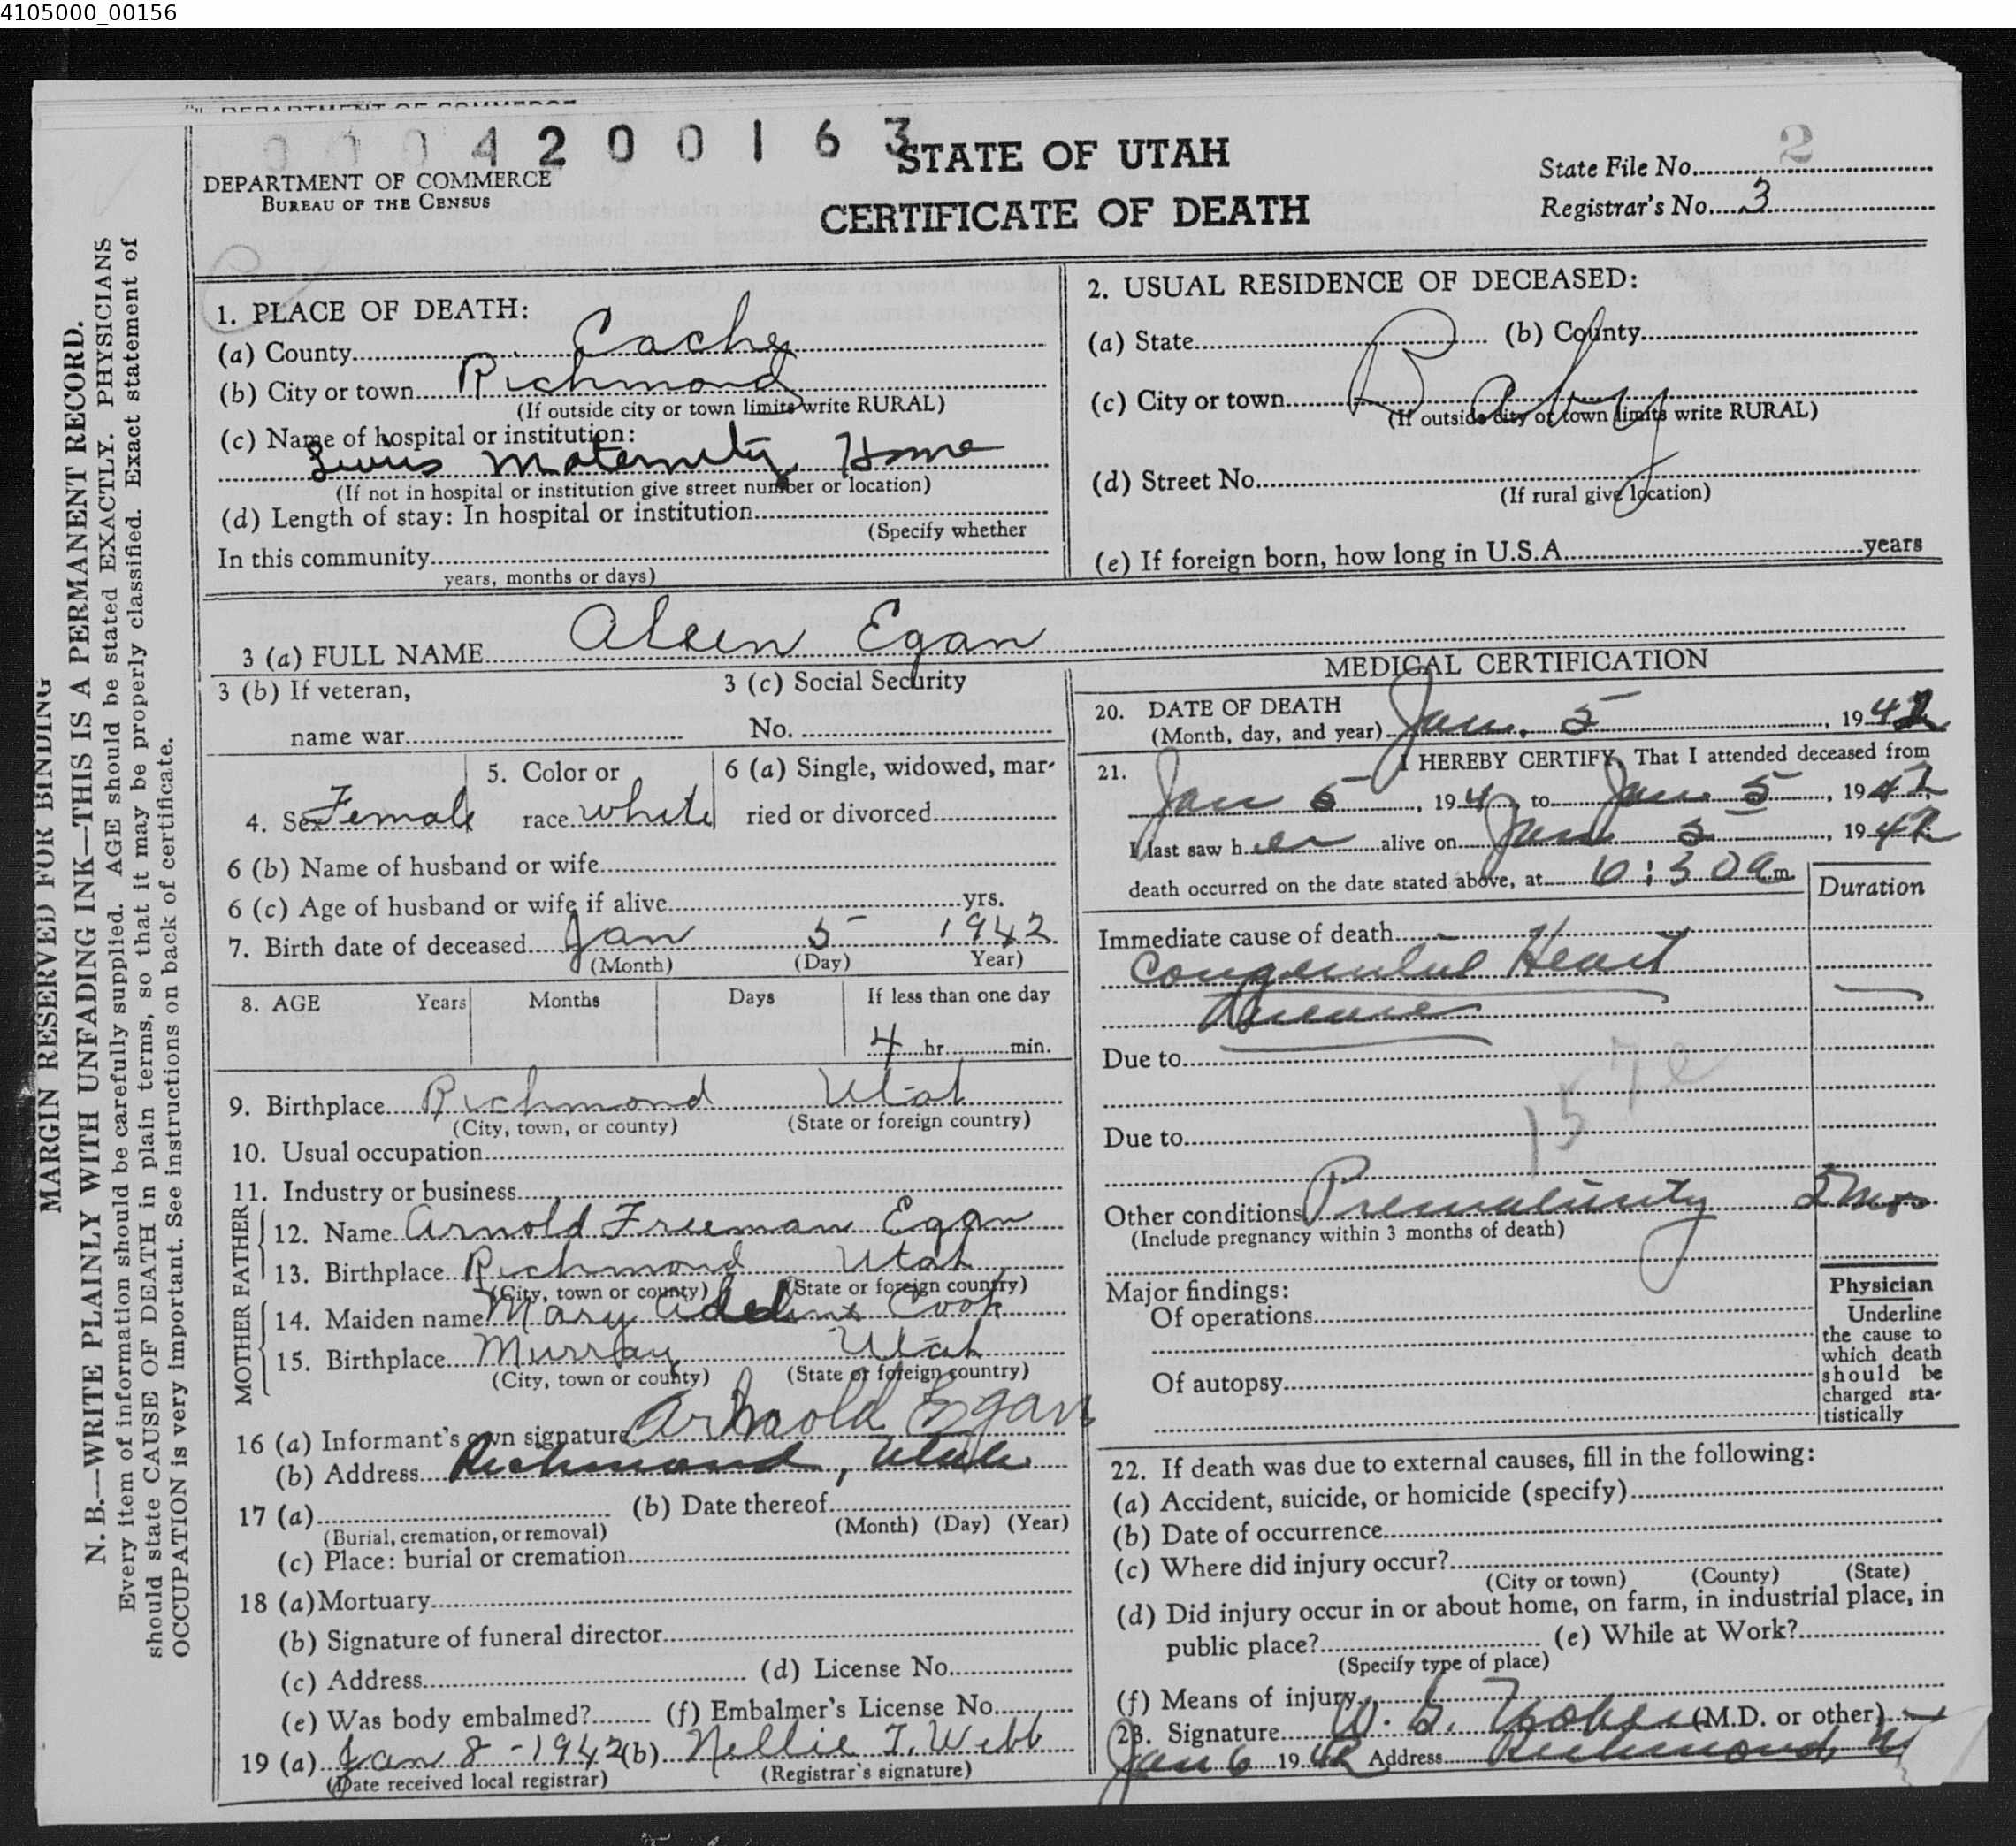 4105000_00156
0004200163
STATE OF UTAH
CERTIFICATE OF DEATH
DEPARTMENT OF COMMERCE
BUREAU OF THE CENSUS
State File No. 2
Registrar's No. 3
MARGIN RESERVED FOR BINDING
N. B.—WRITE PLAINLY WITH UNFADING INK—THIS IS A PERMANENT RECORD.
Every item of information should be carefully supplied. AGE should be stated EXACTLY. PHYSICIANS
should state CAUSE OF DEATH in plain terms, so that it may be properly classified. Exact statement of
OCCUPATION is very important. See instructions on back of certificate.
1. PLACE OF DEATH:
(a) County Cache
(b) City or town Richmond
(If outside city or town limits write RURAL)
(c) Name of hospital or institution:
Maternity Home
(If not in hospital or institution give street number or location)
(d) Length of stay: In hospital or institution
(Specify whether
In this community
years, months or days)
2. USUAL RESIDENCE OF DECEASED:
(a) State (b) County
Baby
(c) City or town
(If outside city or town limits write RURAL)
(d) Street No.
(If rural give location)
(e) If foreign born, how long in U.S.A. years
3 (a) FULL NAME Aleen Egan
3 (b) If veteran,
name war
3 (c) Social Security
No.
4. Sex Female
5. Color or
race white
6 (a) Single, widowed, mar-
ried or divorced
6 (b) Name of husband or wife
6 (c) Age of husband or wife if alive yrs.
7. Birth date of deceased Jan 5 1942
(Month) (Day) Year)
8. AGE Years Months Days If less than one day
4 hr. min.
9. Birthplace Richmond Utah
(City, town, or county) (State or foreign country)
10. Usual occupation
11. Industry or business
FATHER
12. Name Arnold Freeman Egan
13. Birthplace Richmond Utah
(City, town or county) (State or foreign country)
MOTHER
14. Maiden name Mary Adeline Cook
15. Birthplace Murray Utah
(City, town or county) (State or foreign country)
16 (a) Informant's own signature Arnold Egan
(b) Address Richmond, Utah
17 (a) (b) Date thereof
(Burial, cremation, or removal) (Month) (Day) (Year)
(c) Place: burial or cremation
18 (a) Mortuary
(b) Signature of funeral director
(c) Address (d) License No.
(e) Was body embalmed? (f) Embalmer's License No.
19 (a) Jan 8 - 1942 (b) Nellie T. Webb
(Date received local registrar) (Registrar's signature)
MEDICAL CERTIFICATION
20. DATE OF DEATH
(Month, day, and year) Jan. 5, 1942
21. I HEREBY CERTIFY, That I attended deceased from
Jan 5, 194 , to Jan 5, 1942
I last saw her alive on Jan 5, 1942
death occurred on the date stated above, at 6:30 a m.
Duration
Immediate cause of death
Congenital Heart
Disease
Due to
157e
Due to
Other conditions Prematurity 2 mos
(Include pregnancy within 3 months of death)
Major findings:
Of operations
Of autopsy
Physician
Underline
the cause to
which death
should be
charged sta-
tistically
22. If death was due to external causes, fill in the following:
(a) Accident, suicide, or homicide (specify)
(b) Date of occurrence
(c) Where did injury occur?
(City or town) (County) (State)
(d) Did injury occur in or about home, on farm, in industrial place, in
public place? (e) While at Work?
(Specify type of place)
(f) Means of injury
23. Signature (M.D. or other)
Jan 6 1942 Address Richmond